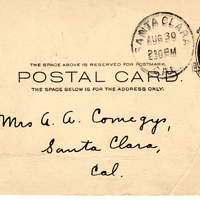 SANTA CLARA
AUG 30
230PM
CAL.
THE SPACE ABOVE IS RESERVED FOR POSTMARK.
POSTAL CARD.
THE SPACE BELOW IS FOR THE ADDRESS ONLY.
Mrs A. A. Comegys,
Santa Clara,
Cal.